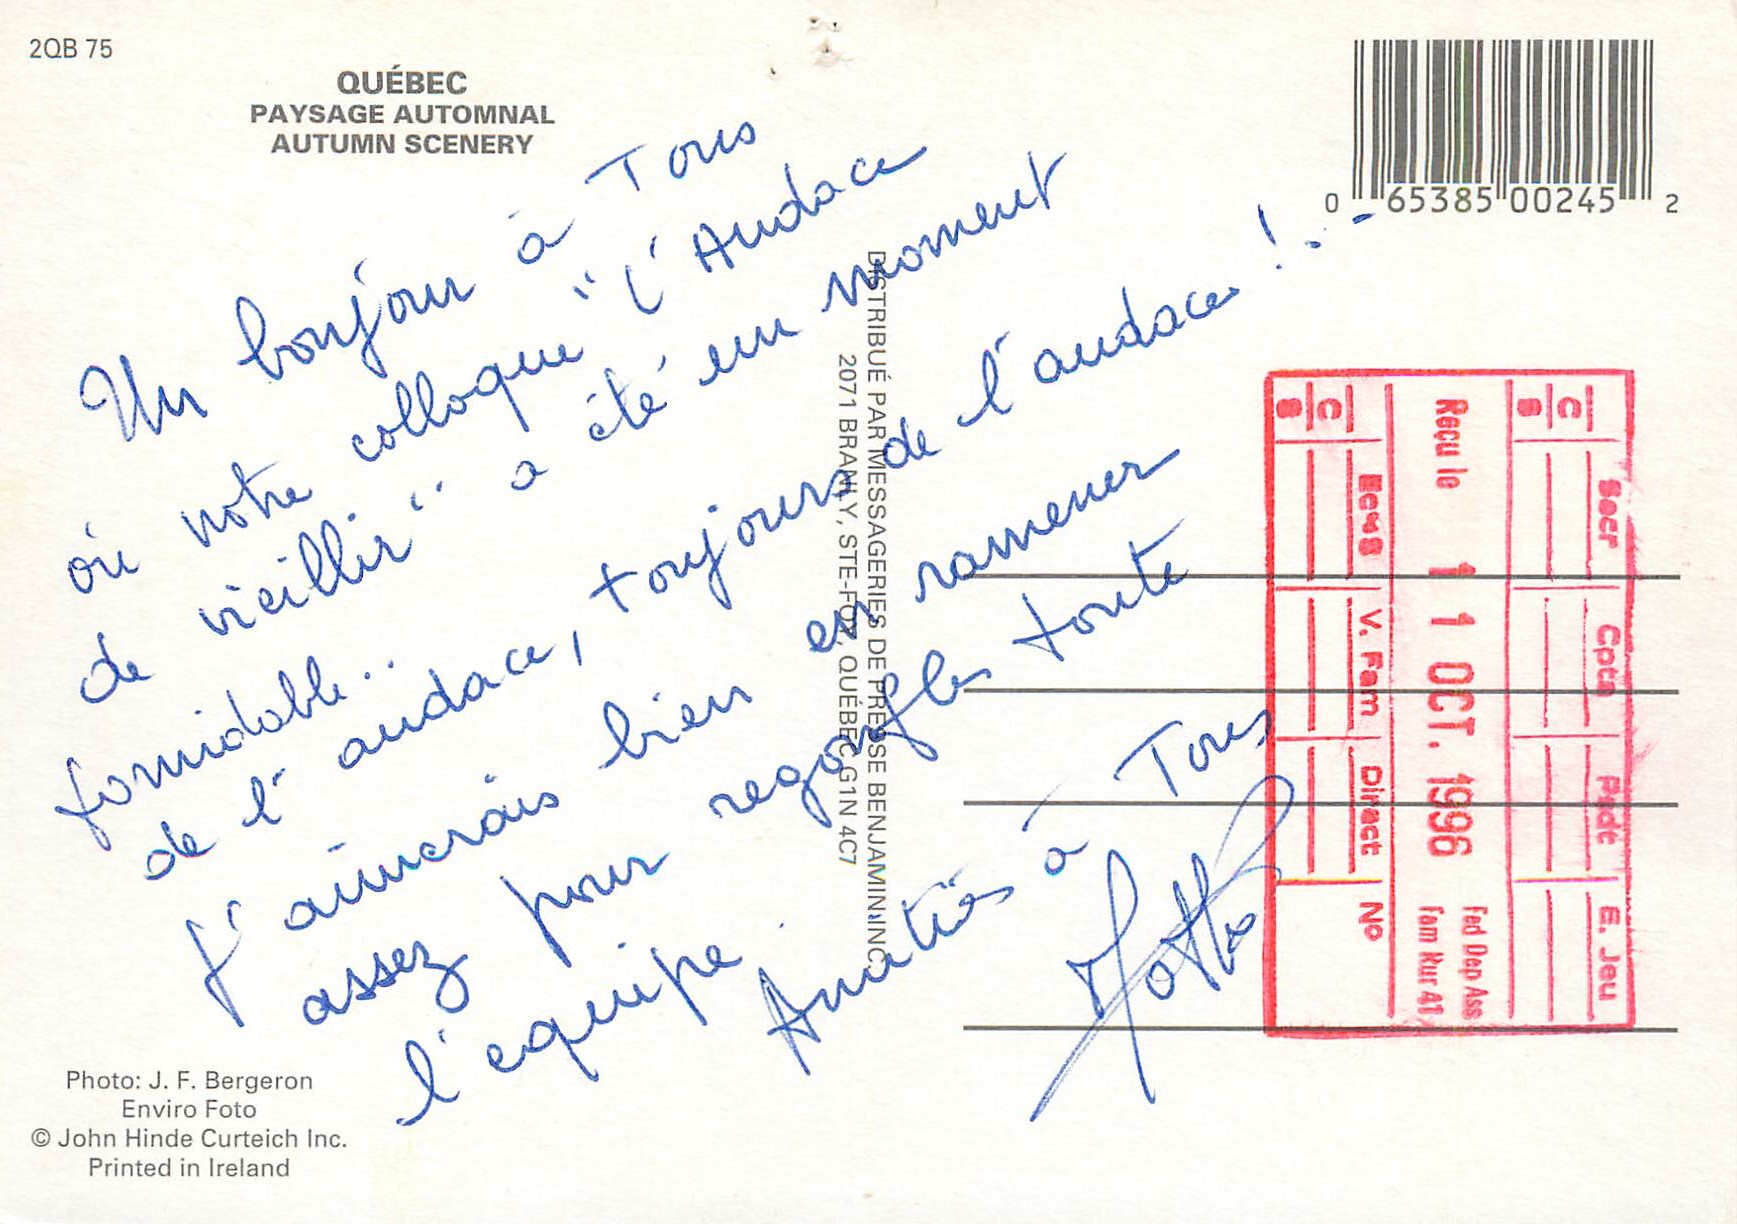 2QB 75
QUÉBEC
PAYSAGE AUTOMNAL
AUTUMN SCENERY
0 65385 00245 2
Un bonjour à Tous
où notre colloque "l'Audace
de vieillir" a été un moment
formidable...
de l'audace, toujours de l'audace!...
J'aimerais bien en ramener
assez pour regonfler toute
l'équipe.
Amitiés à Tous
DISTRIBUÉ PAR MESSAGERIES DE PRESSE BENJAMIN INC.
2071 BRANLY, STE-FOY, QUÉBEC G1N 4C7
Secr Cpta Pédé E. Jeu
C B
Reçu le 11 OCT. 1996 Fed Dep Ass
Fam Rur 41
Ecus V. Fam Direct No
C B
Photo: J. F. Bergeron
Enviro Foto
© John Hinde Curteich Inc.
Printed in Ireland